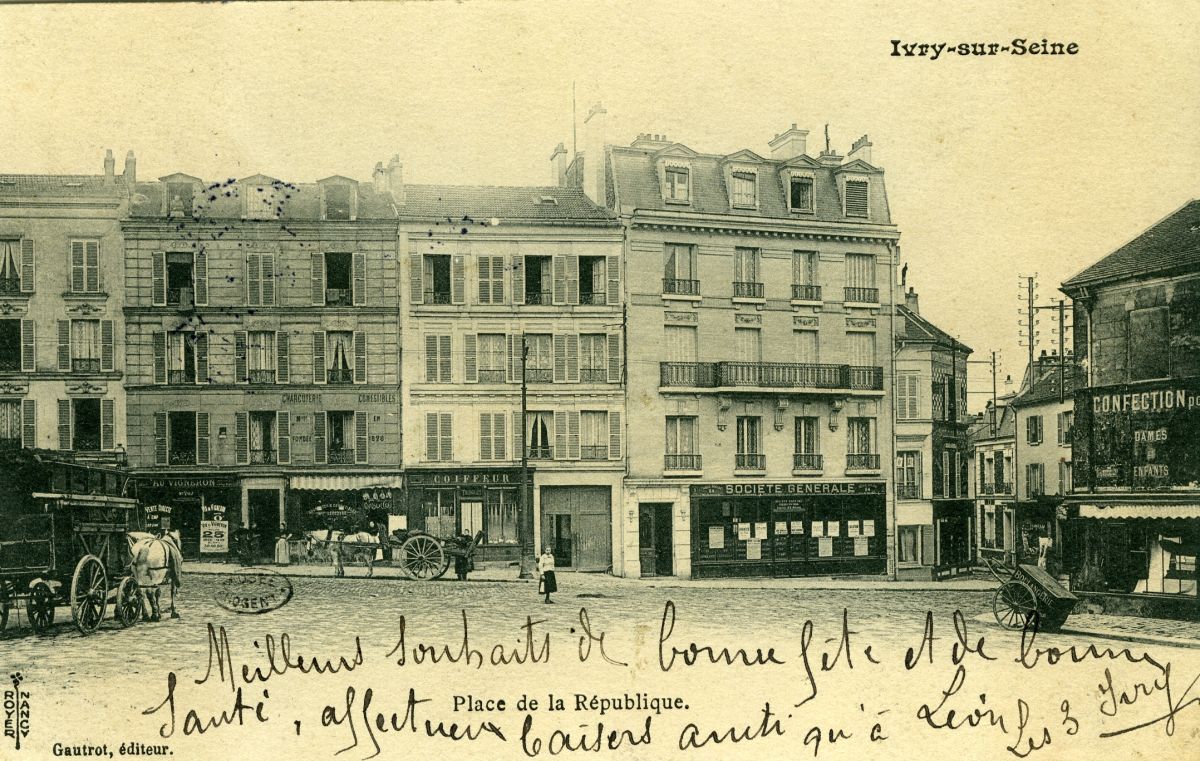 Ivry-sur-Seine
CHARCUTERIE COMESTIBLES
FONDÉE EN
AU VIGNERON
COIFFEUR
SOCIETE GENERALE
CONFECTION
DAMES
ENFANTS
25
Meilleurs souhaits de bonne fête et de bonne
Santé, affectueux baisers ainsi qu'à Léon
Les 3 Ivry
Place de la République.
ROYER
NANCY
Gautrot, éditeur.